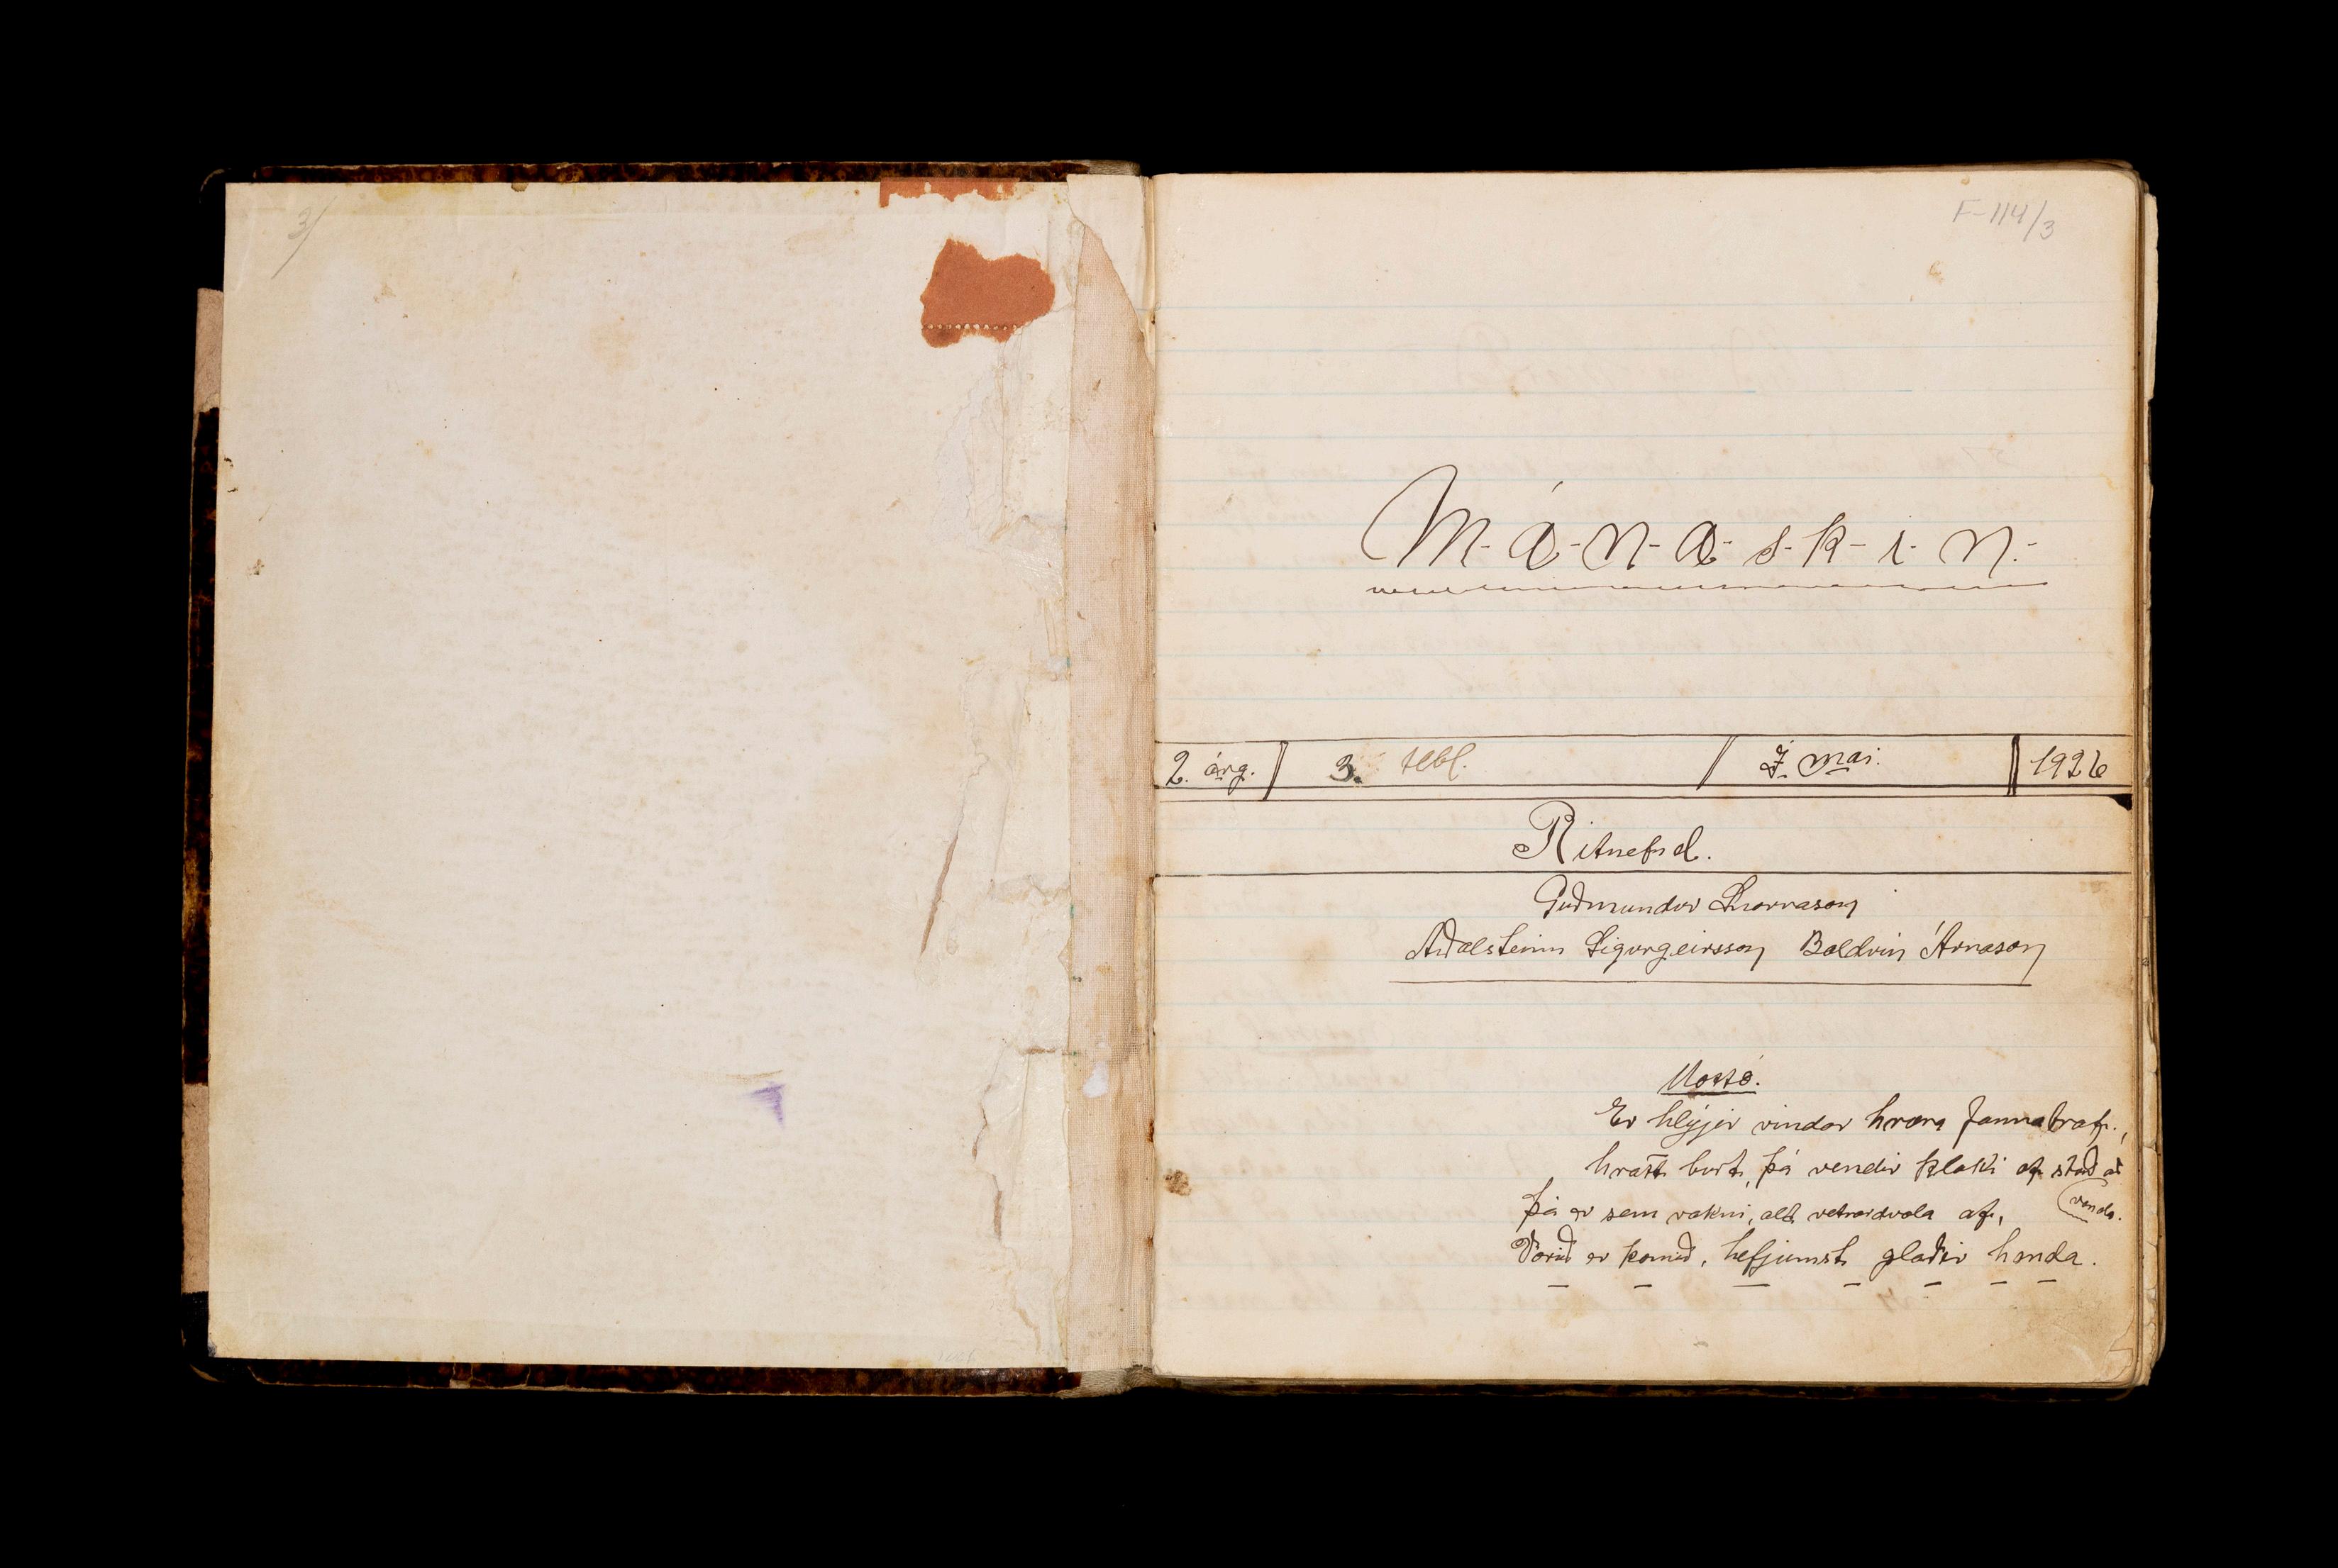 3/
F-114/3
M-á-n-a-s-k-i-n.-
2. árg. 3. tbl. Í mai. 1926
Ritnefnd.
Guðmundur Snorrason
Aðalsteinn Sigurgeirsson Baldvin Árnason
Mottó.
Er hlýjir vindar hræra fannatraf,
hratt burt, þá vendir klaki af stað að
venda.
þá er sem vakni, alt vetrardvala af,
Vorið er komið, hefjumst glaðir handa.